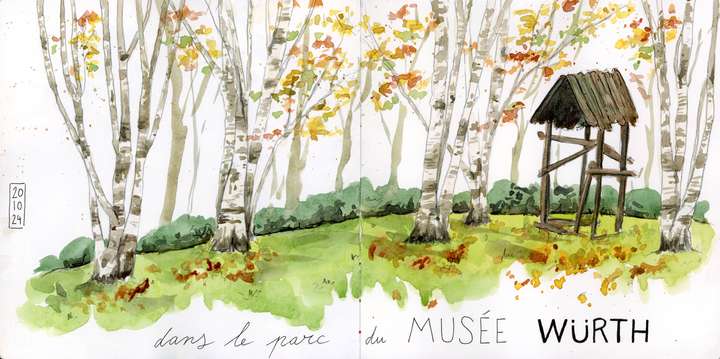 20
10
24
dans le parc du MUSÉE WÜRTH